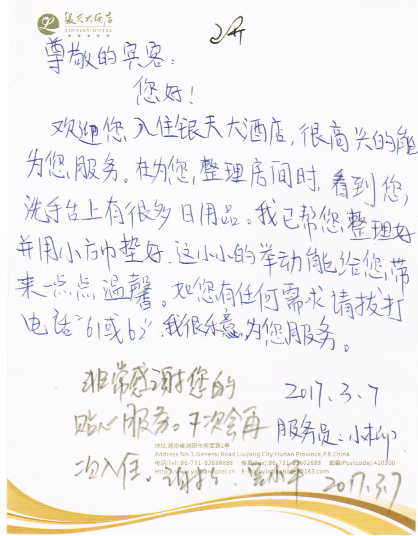 银天大酒店
YINTIAN HOTEL
尊敬的宾客：
您好！
欢迎您入住银天大酒店，很高兴的能
为您服务。在为您整理房间时，看到您，
洗手台上有很多日用品。我已帮您整理好
并用小方巾垫好，这小小的举动能给您带
来一点点温馨。如您有任何需求请拔打
电话“61或62”，我很乐意为您服务。
2017.3.7
服务员：小柳
非常感谢您的
贴心服务。下次会再
次入住。谢谢
2017.3.7
地址:湖南省浏阳市将军路1号
Address:No.1 General Road,Liuyang City,Hunan Province,P.R.China
电话(Tel):86-731-83688688 传真(Fax):86-731-83602686 邮编(Postcode):410300